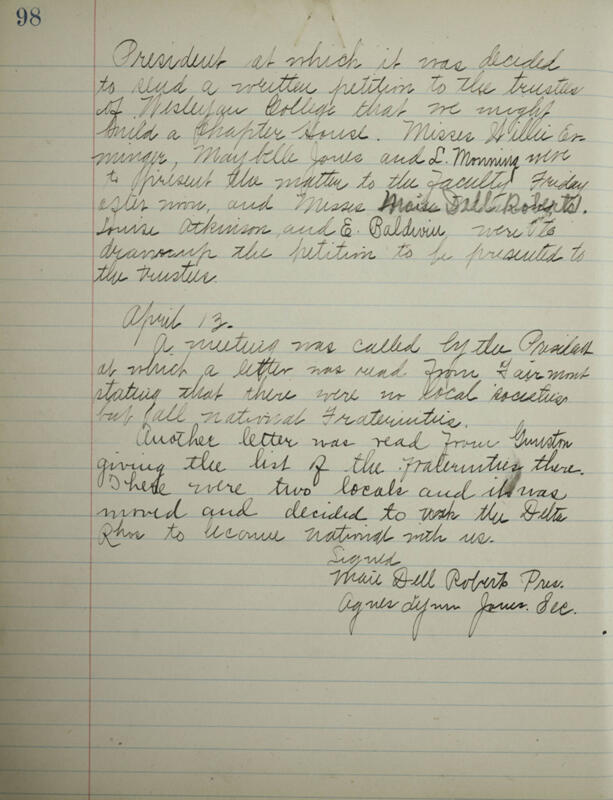 98
President at which it was decided
to send a written petition to the trustees
of Wesleyan College that we might
build a Chapter House. Misses Willie Er-
minger, Maybelle Jones and L. Monning were
to present the matter to the Faculty Friday
after noon, and Misses Maie Dell Roberts,
Louise Atkinson, and E. Baldwin were to
draw up the petition to be presented to
the trustees.
April 13.
A meeting was called by the President
at which a letter was read from Fairmont
stating that there were no local societies
but all national Fraternities.
Another letter was read from Gunston
giving the list of the fraternities there.
There were two locals and it was
moved and decided to work the Delta
Rhos to become national with us.
Signed
Maie Dell Roberts Pres.
Agnes Lynn Jones. Sec.